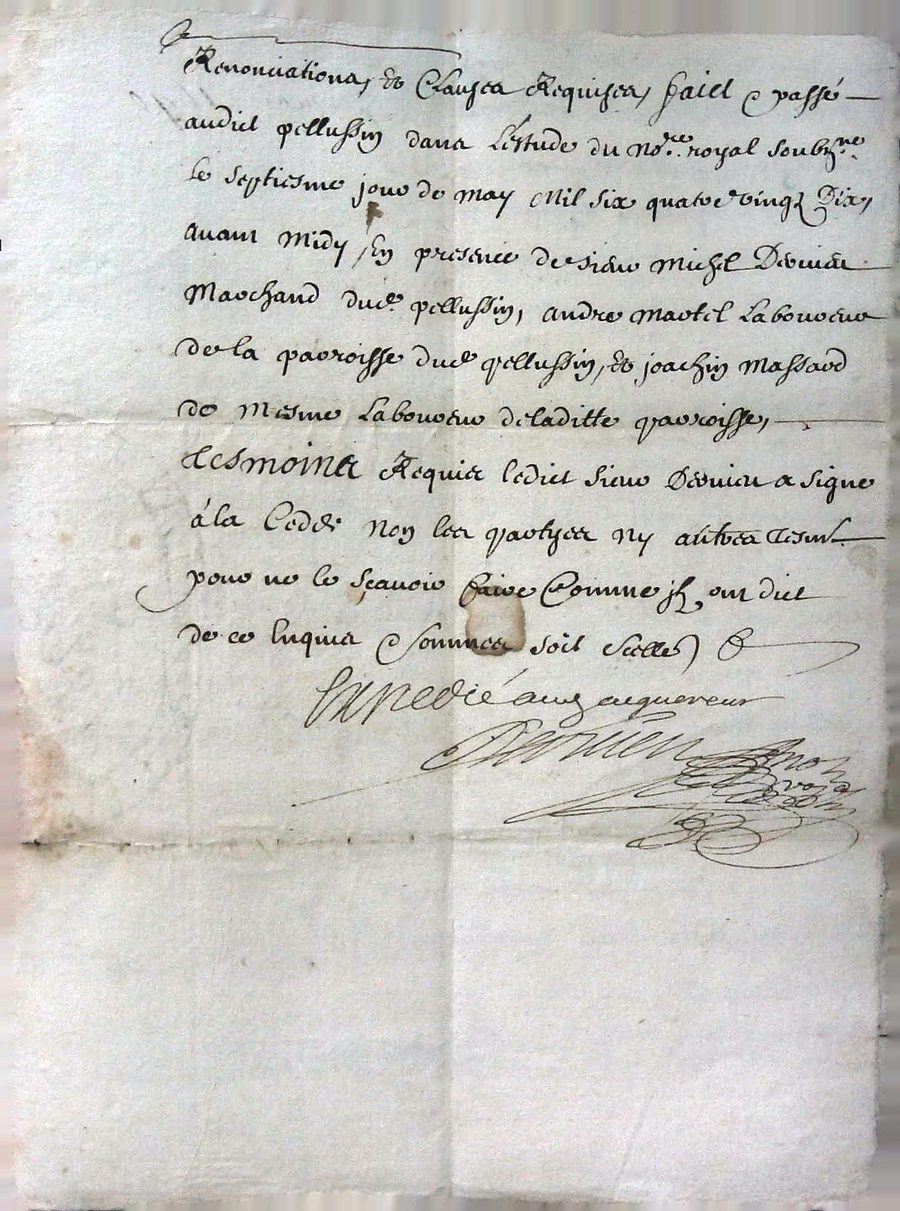 Renonciations, & Clauses Requises, faict e passé
audict pellussin dans L'estude du no.re royal soub.ne
le septiesme jour de may Mil six quatre vingt Dix,
avant midy, En presence de sieur michel Dervieu
Marchand dud. pellussin, andre martel Laboureur
de la parroisse dud pellussin, & joachin massard
de mesme Laboureur deladitte parroisse,
tesmoins Requis ledict sieur Dervieu a signe
á la Cedde non les partyes ny autres tesm.
pour ne le sçavoir faire Comme jls ont dict
de ce Enquis e sommes soit scelle
Expedié aux acquereur
Dervieu